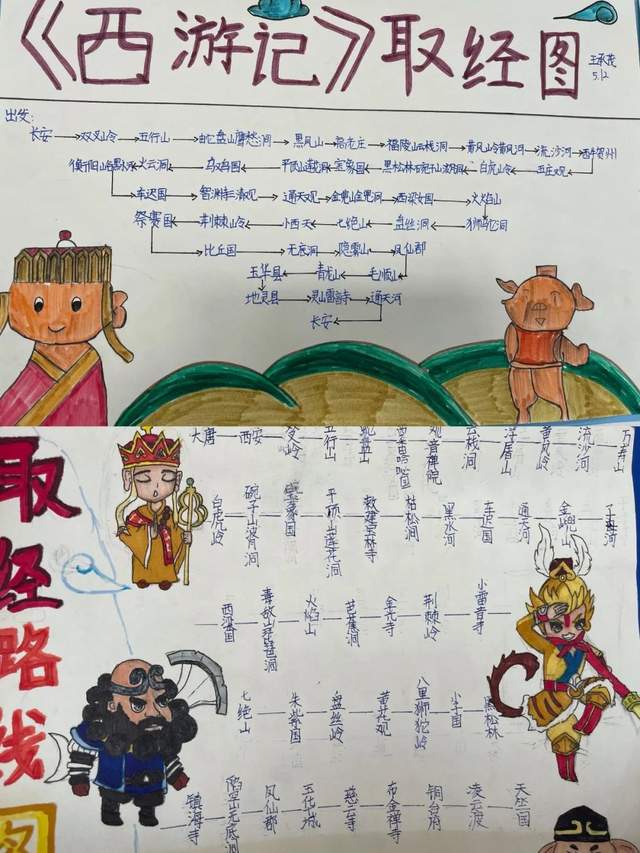 《西游记》取经图
王承茂
5.12
出发:
长安→双叉岭→五行山→蛇盘山鹰愁涧→黑风山→高老庄→福陵山云栈洞→黄风岭黄风河→流沙河→西牛贺州
衡阳山峪黑水河←火云洞←乌鸡国←平顶山莲花洞←宝象国←黑松林碗子山波月洞←白虎岭←五庄观
车迟国→智渊寺三清观→通天观→金兜山金兜洞→西梁女国→火焰山
祭赛国←荆棘岭←小西天←七绝山←盘丝洞←狮驼洞
比丘国→无底洞→隐雾山→凤仙郡
玉华县←青龙山←毛顺山
地灵县→灵山雷音寺→通天河
长安
取经路线图
大唐—西安—双叉岭—五行山—蛇盘山—西番哈咇国—观音禅院—云栈洞—浮屠山—黄风岭—流沙河—万寿山
白虎岭—碗子山波月洞—宝象国—平顶山莲花洞—敕建宝林寺—枯松涧—黑水河—车迟国—通天河—金兜山—子母河
西梁国—毒敌山琵琶洞—火焰山—芭蕉洞—金光寺—荆棘岭—小雷音寺
七绝山—朱紫国—盘丝岭—黄花观—八里狮驼岭—比丘国—黑松林
镇海寺—陷空山无底洞—凤仙郡—玉花城—慈云寺—布金禅寺—铜台府—凌云渡—天竺国